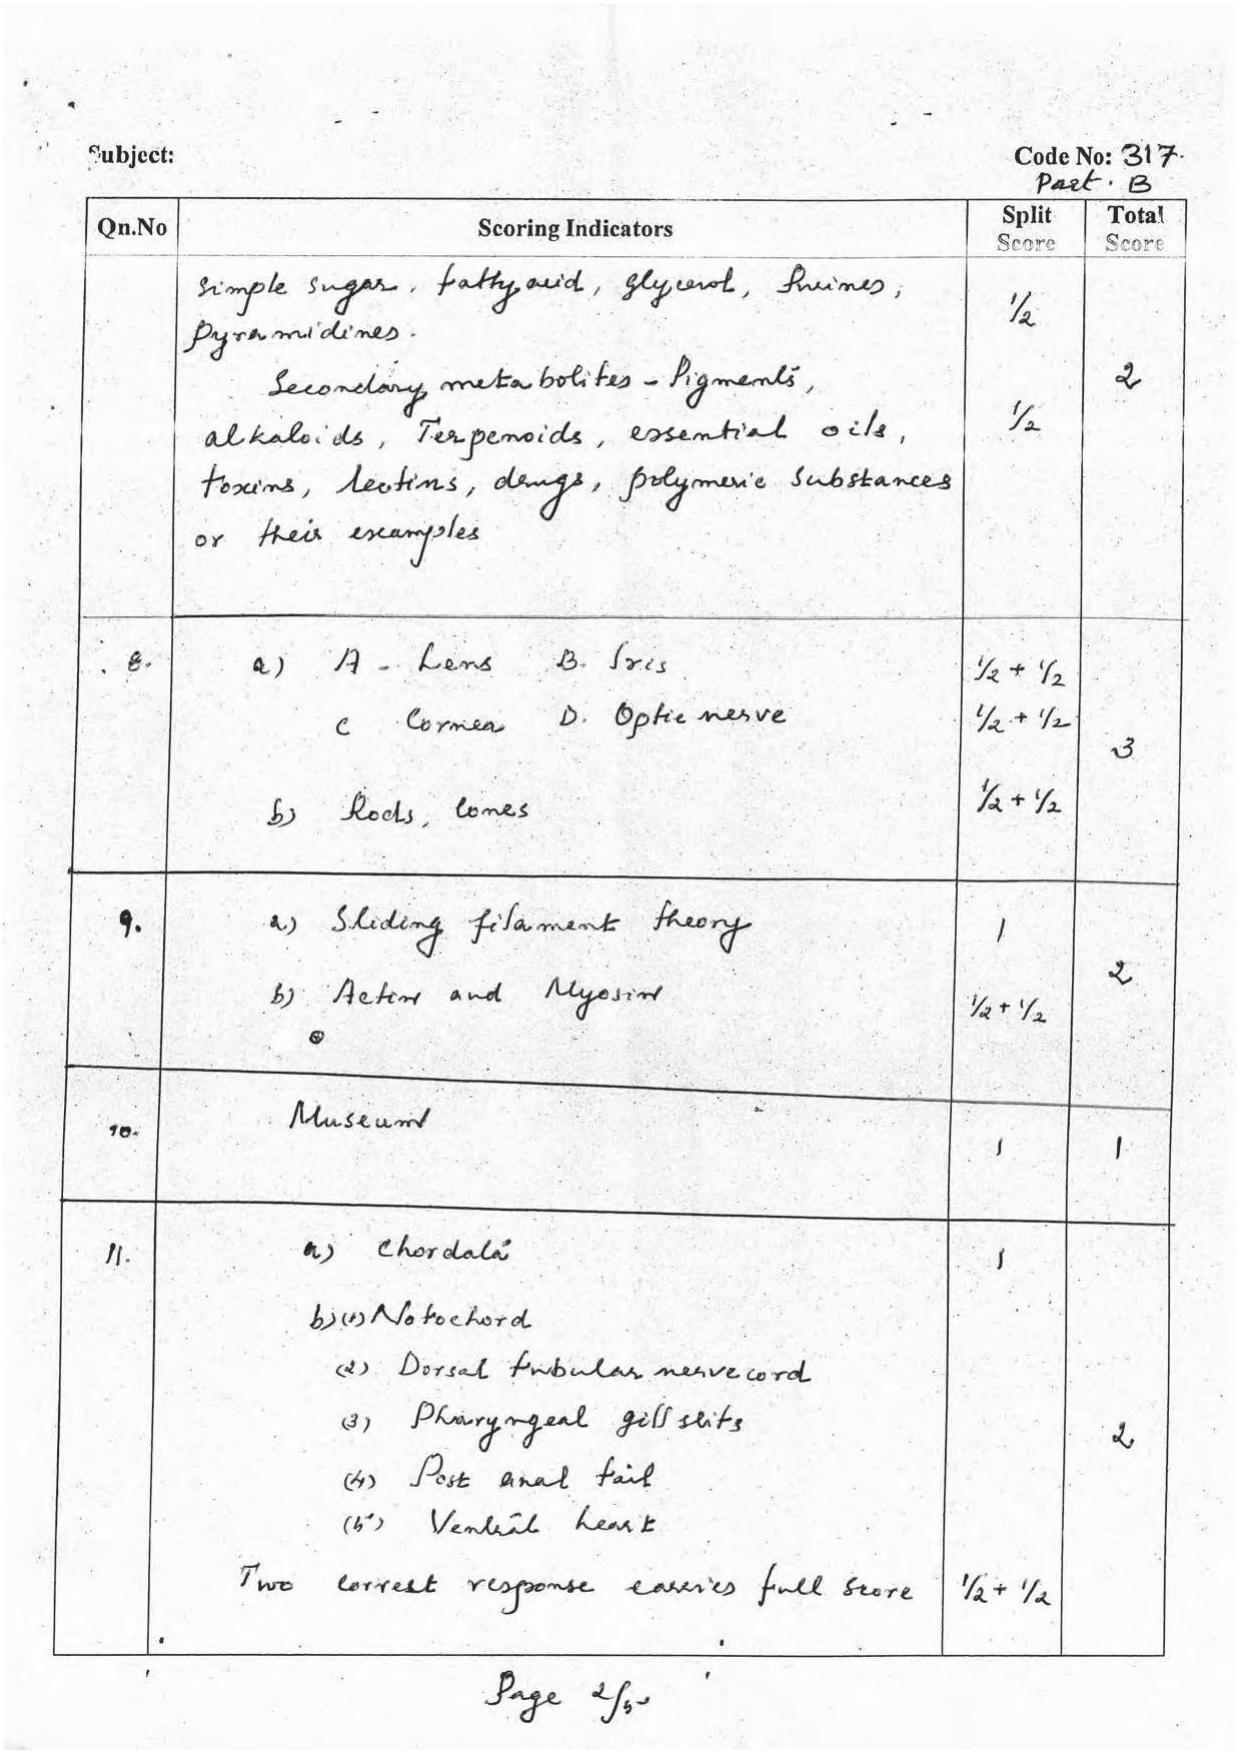 Subject:
Code No: 317.
Part. B
Qn.No Scoring Indicators Split Score Total Score
Simple sugar, fatty acid, glycerol, Purines, 1/2
pyramidines.
Secondary metabolites - Pigments, 2
alkaloids, Terpenoids, essential oils, 1/2
toxins, lectins, drugs, polymeric substances
or their examples
8. a) A - Lens B. Iris 1/2 + 1/2
C Cornea D. Optic nerve 1/2 + 1/2
3
b) Rods, Cones 1/2 + 1/2
9. a) Sliding filament theory 1
2
b) Actin and Myosin 1/2 + 1/2
10. Museum 1 1
11. a) Chordata 1
b) (1) Notochord
(2) Dorsal tubular nerve cord
(3) Pharyngeal gill slits 2
(4) Post anal tail
(5) Ventral heart
Two correct response carries full score 1/2 + 1/2
Page 2/5